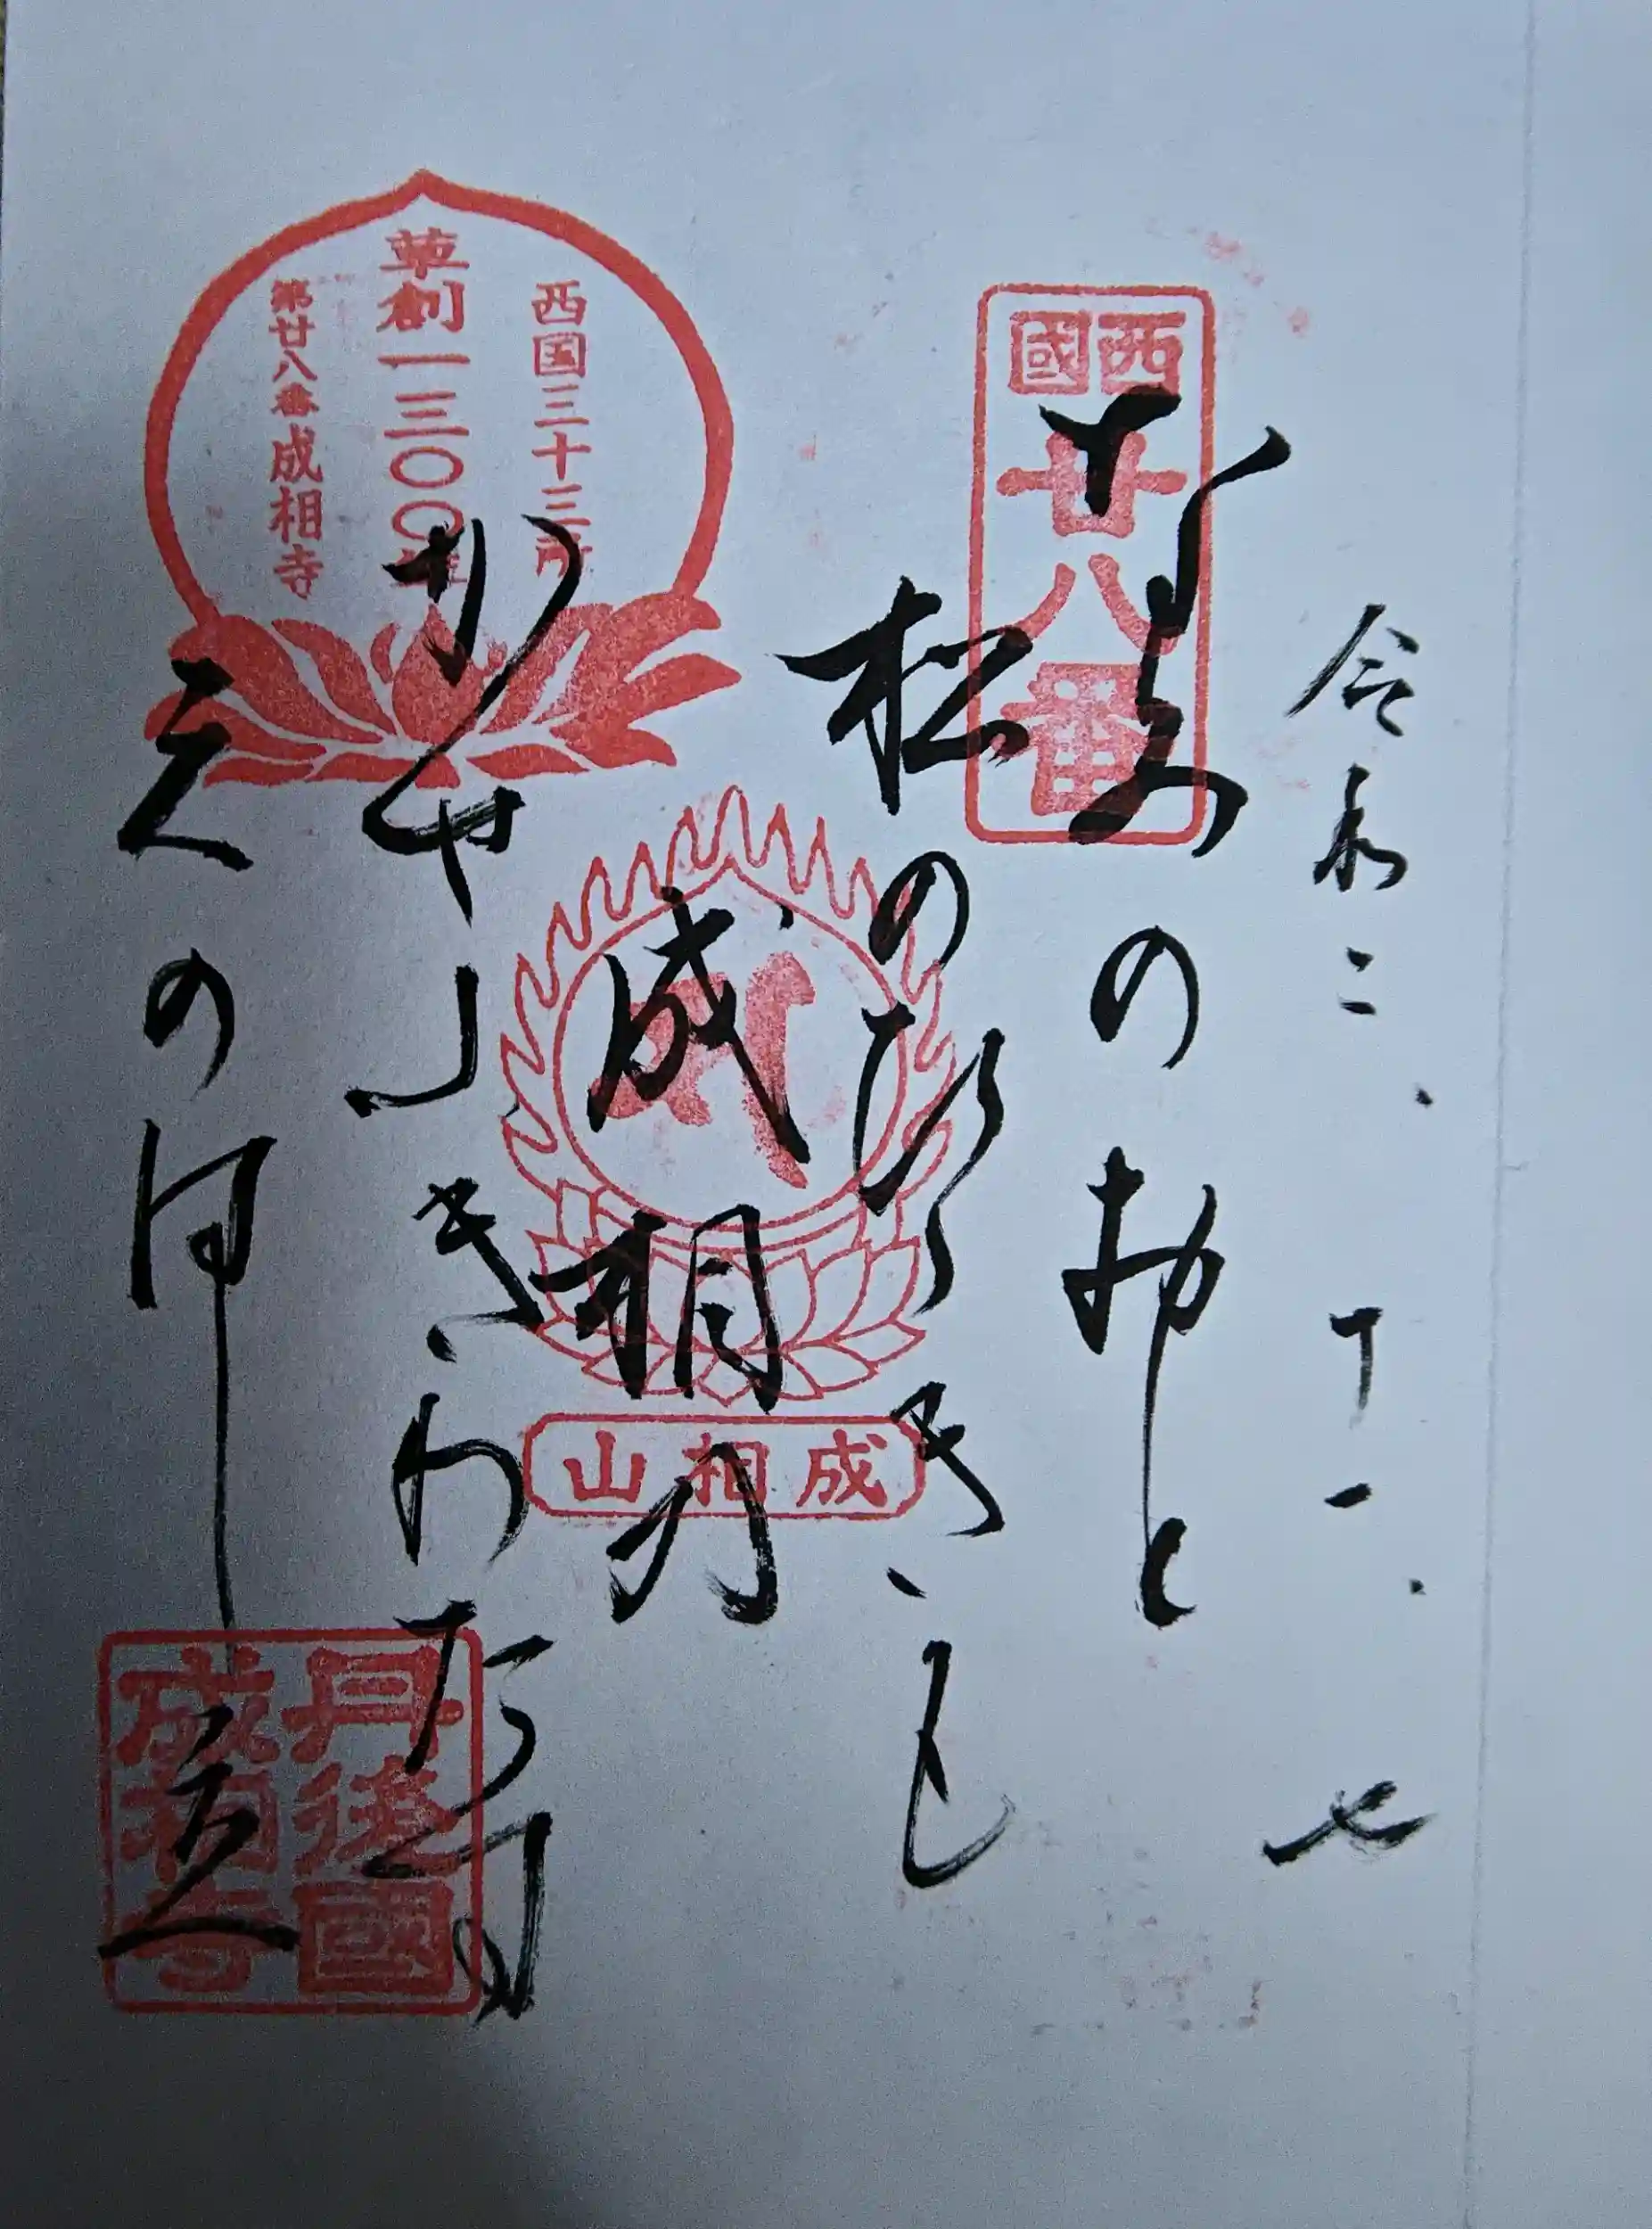 令和二、十一、七
西國
廿八番
なみのおと
松のひゞきも
成相の
かせふきわたす
天のはし立
西国三十三所
草創一三〇〇年
第廿八番成相寺
成相山
丹後國
成相寺